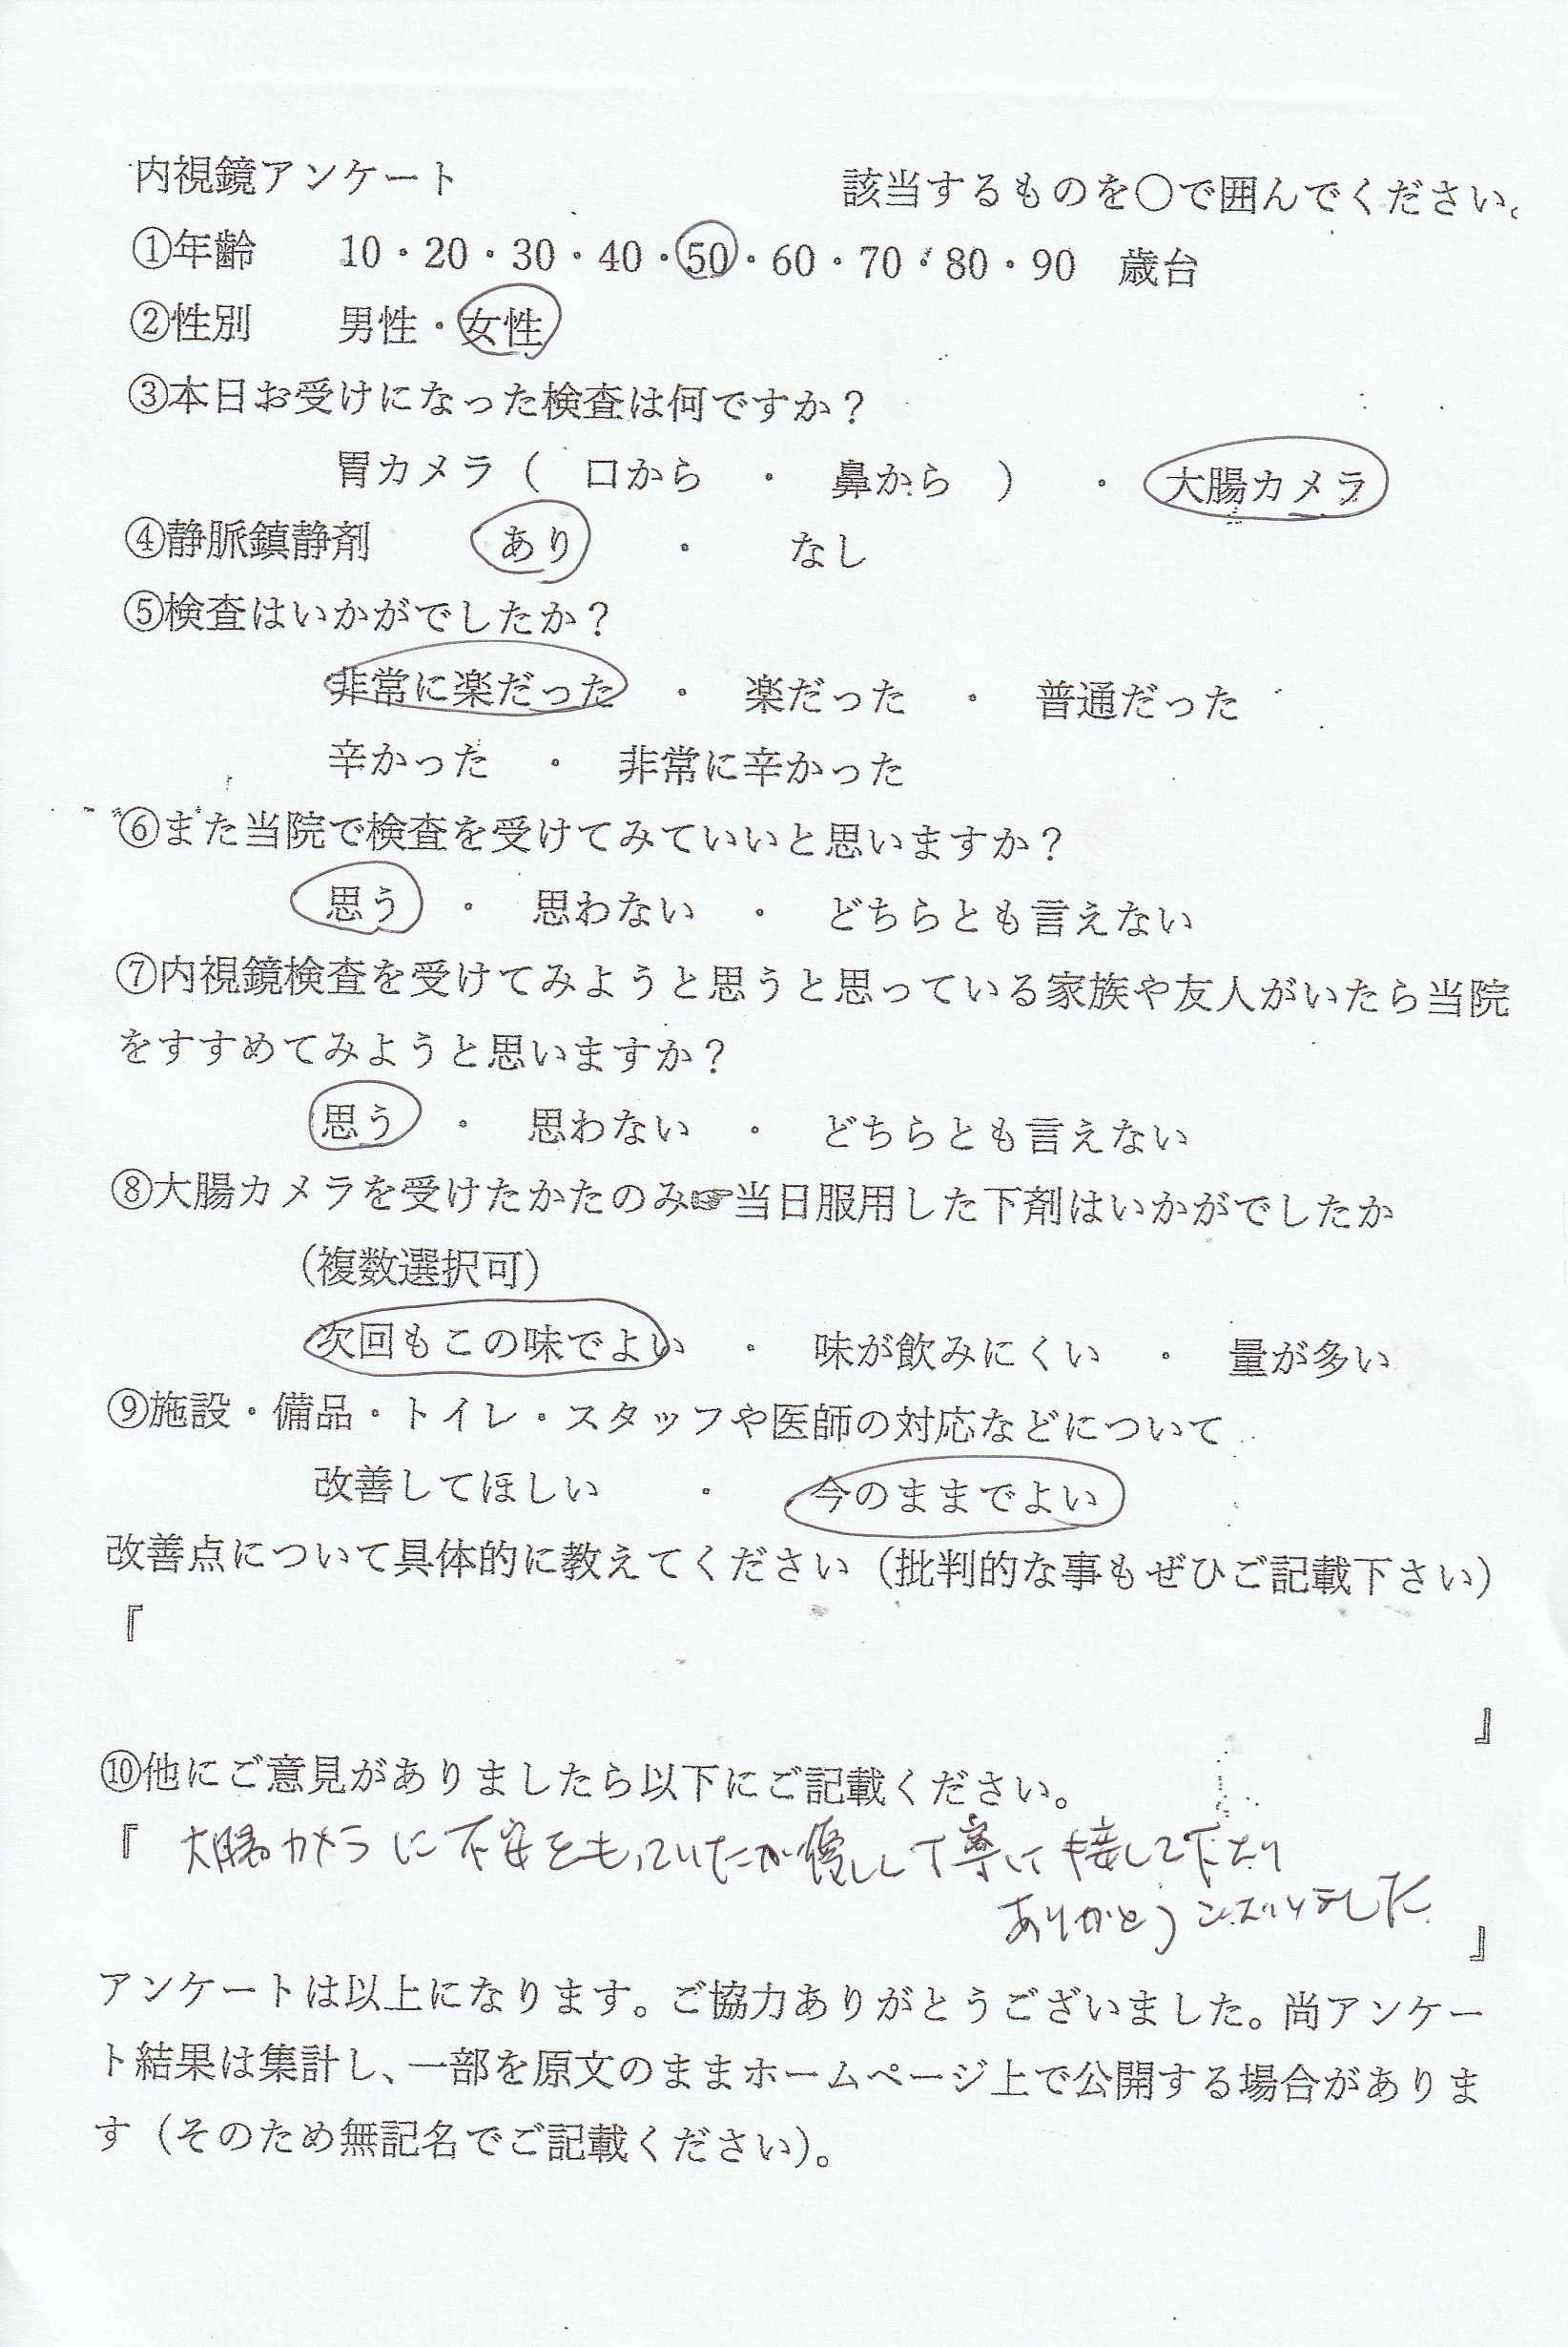 内視鏡アンケート　該当するものを〇で囲んでください。
①年齢　10・20・30・40・50・60・70・80・90　歳台
②性別　男性・女性
③本日お受けになった検査は何ですか？
胃カメラ（　口から　・　鼻から　）　・　大腸カメラ
④静脈鎮静剤　あり　・　なし
⑤検査はいかがでしたか？
非常に楽だった　・　楽だった　・　普通だった
辛かった　・　非常に辛かった
⑥また当院で検査を受けてみていいと思いますか？
思う　・　思わない　・　どちらとも言えない
⑦内視鏡検査を受けてみようと思うと思っている家族や友人がいたら当院
をすすめてみようと思いますか？
思う　・　思わない　・　どちらとも言えない
⑧大腸カメラを受けたかたのみ☞当日服用した下剤はいかがでしたか
（複数選択可）
次回もこの味でよい　・　味が飲みにくい　・　量が多い
⑨施設・備品・トイレ・スタッフや医師の対応などについて
改善してほしい　・　今のままでよい
改善点について具体的に教えてください（批判的な事もぜひご記載下さい）
『
』
⑩他にご意見がありましたら以下にご記載ください。
『 大腸カメラに不安をもっていたが優しく丁寧に接して下さり
ありがとうございました
』
アンケートは以上になります。ご協力ありがとうございました。尚アンケー
ト結果は集計し、一部を原文のままホームページ上で公開する場合がありま
す（そのため無記名でご記載ください）。